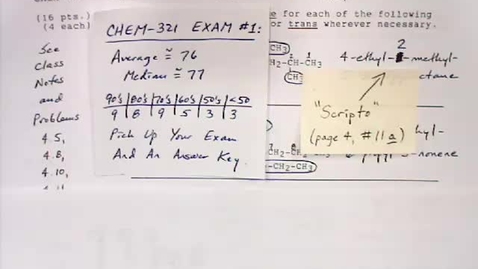 (16 pts.)
e for each of the following
(4 each)
or trans wherever necessary.
See
Class
Notes
and
Problems
4.5,
4.8,
4.10,
CHEM-321 EXAM #1:
Average ≅ 76
Median ≅ 77
90's 80's 70's 60's 50's <50
9 8 9 5 3 3
Pick Up Your Exam
And An Answer Key.
CH3
CH2-CH-CH
CH3
2
4-ethyl- -methyl-
octane
"Scripto"
(page 4, #11a)
hyl-
CH2-C
-nonene
-CH2-CH3